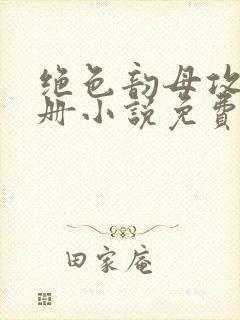 绝色韵母攻
册小说免费
田家庵